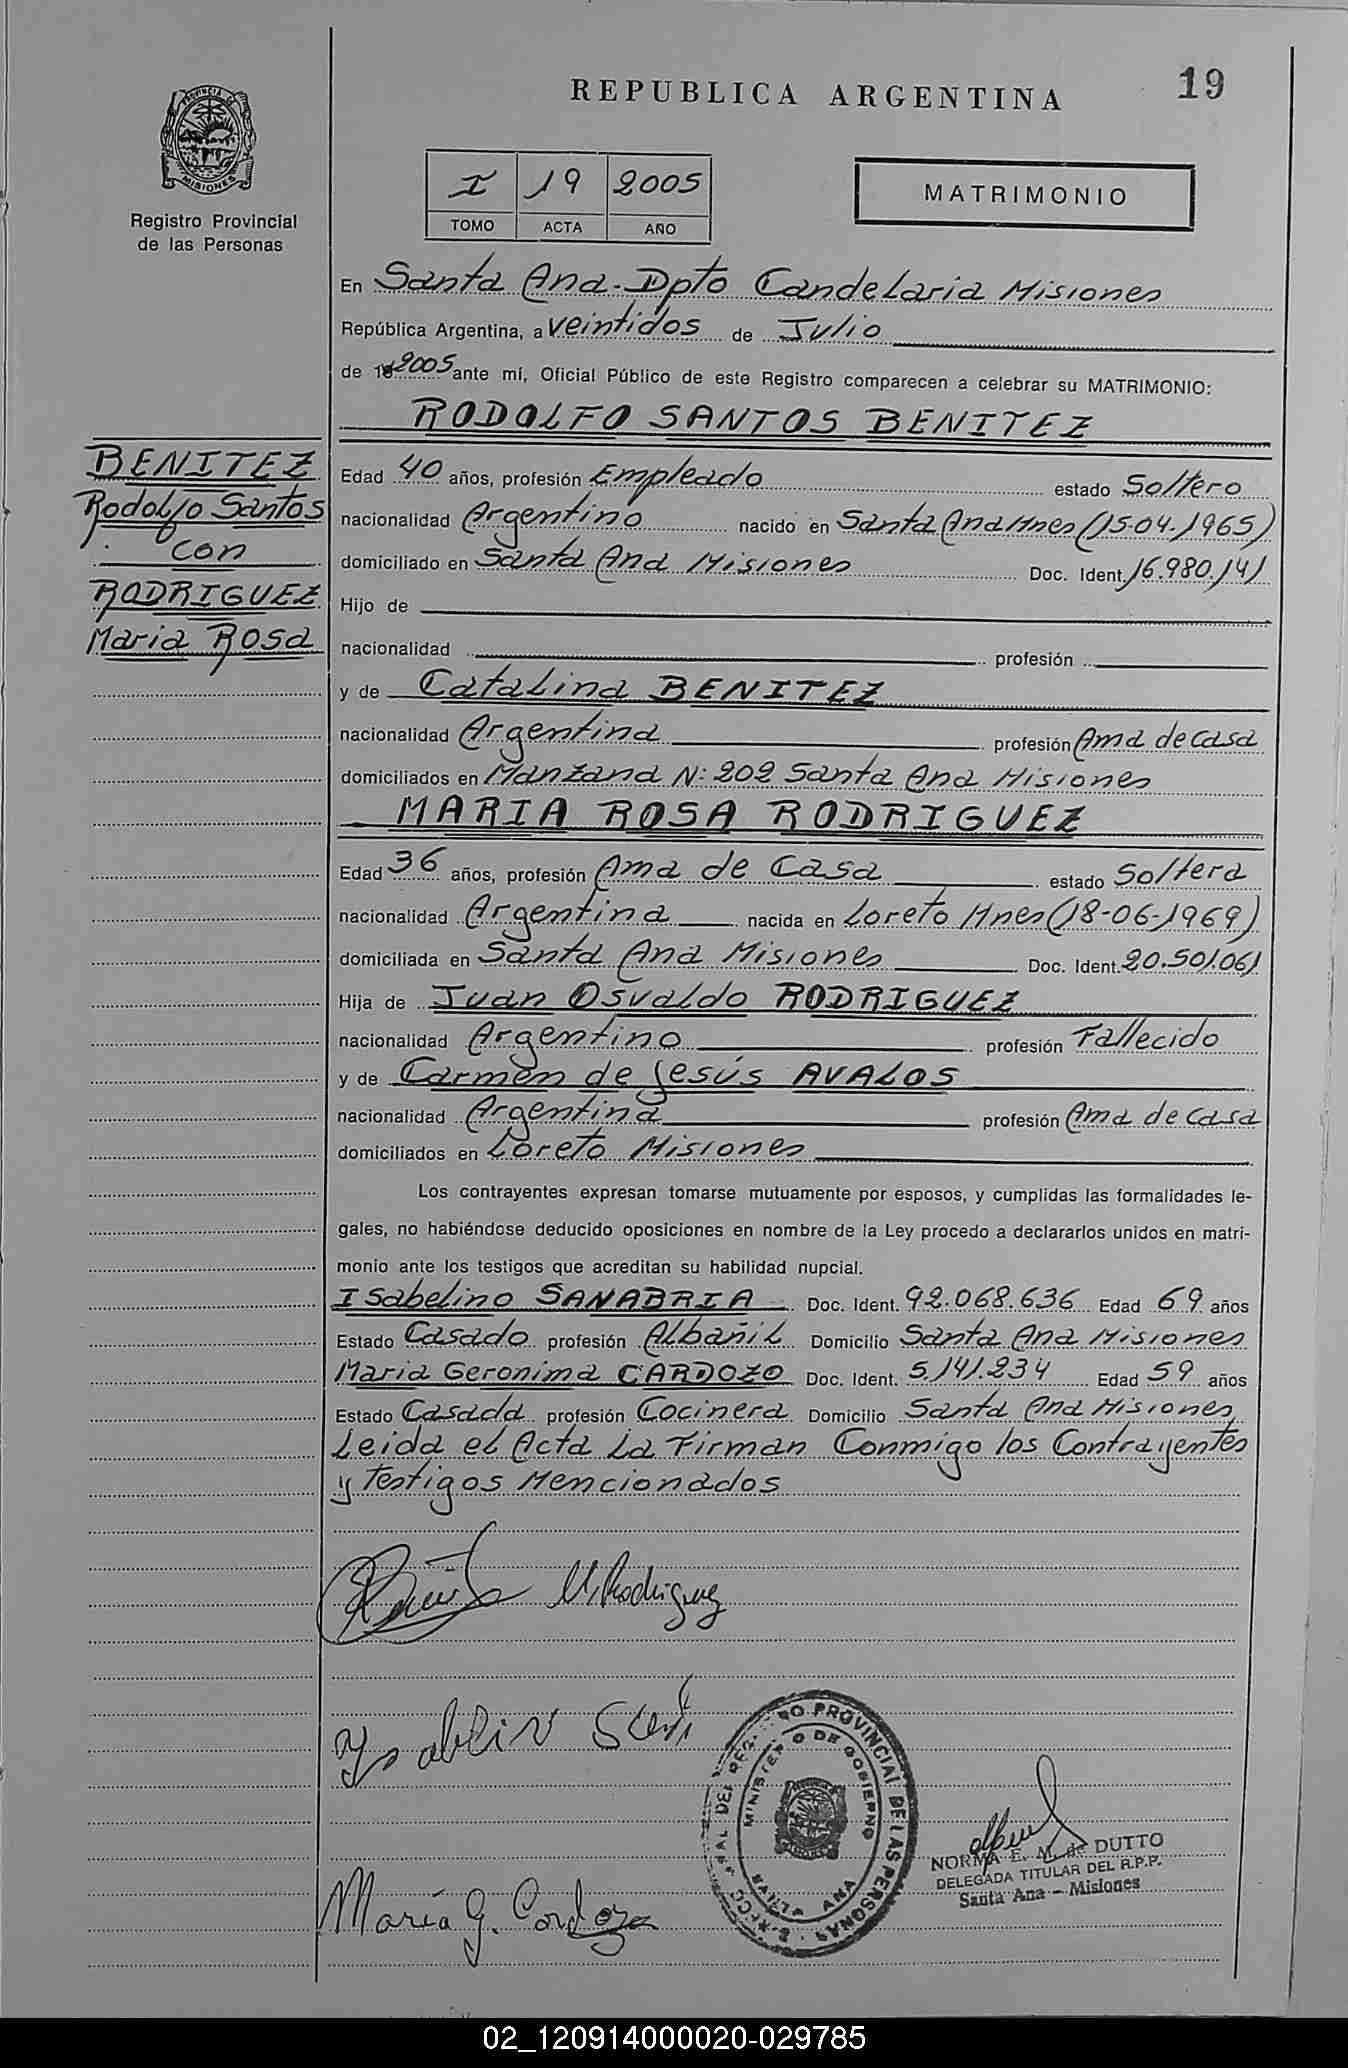 19
REPUBLICA ARGENTINA
PROVINCIA DE
MISIONES
Registro Provincial
de las Personas
I 19 2005
TOMO ACTA AÑO
MATRIMONIO
En Santa Ana-Dpto Candelaria Misiones
República Argentina, a veintidos de Julio
de 2005 ante mí, Oficial Público de este Registro comparecen a celebrar su MATRIMONIO:
RODOLFO SANTOS BENITEZ
BENITEZ
Rodolfo Santos
con
RODRIGUEZ
Maria ROSA
Edad 40 años, profesión Empleado estado Soltero
nacionalidad Argentino nacido en Santa Ana Mnes (15-04-1965)
domiciliado en Santa Ana Misiones Doc. Ident. 16.980.141
Hijo de
nacionalidad profesión
y de Catalina BENITEZ
nacionalidad Argentina profesión Ama de casa
domiciliados en Manzana N: 202 Santa Ana Misiones
MARIA ROSA RODRIGUEZ
Edad 36 años, profesión Ama de Casa estado Soltera
nacionalidad Argentina nacida en Loreto Mnes (18-06-1969)
domiciliada en Santa Ana Misiones Doc. Ident. 20.501.061
Hija de Juan Osvaldo RODRIGUEZ
nacionalidad Argentino profesión Fallecido
y de Carmen de Jesús AVALOS
nacionalidad Argentina profesión Ama de casa
domiciliados en Loreto Misiones
Los contrayentes expresan tomarse mutuamente por esposos, y cumplidas las formalidades le-
gales, no habiéndose deducido oposiciones en nombre de la Ley procedo a declararlos unidos en matri-
monio ante los testigos que acreditan su habilidad nupcial.
Isabelino SANABRIA Doc. Ident. 92.068.636 Edad 69 años
Estado Casado profesión Albañil Domicilio Santa Ana Misiones
Maria Geronima CARDOZO Doc. Ident. 5.141.234 Edad 59 años
Estado Casada profesión Cocinera Domicilio Santa Ana Misiones
Leida el Acta La Firman Conmigo los Contrayentes
y Testigos Mencionados
M. Rodriguez
PROVINCIAL DE LAS PERSONAS
MINISTERIO DE GOBIERNO
SANTA ANA
NORMA E. M. de DUTTO
DELEGADA TITULAR DEL R.P.P.
Santa Ana - Misiones
María G. Cardozo
02_120914000020-029785